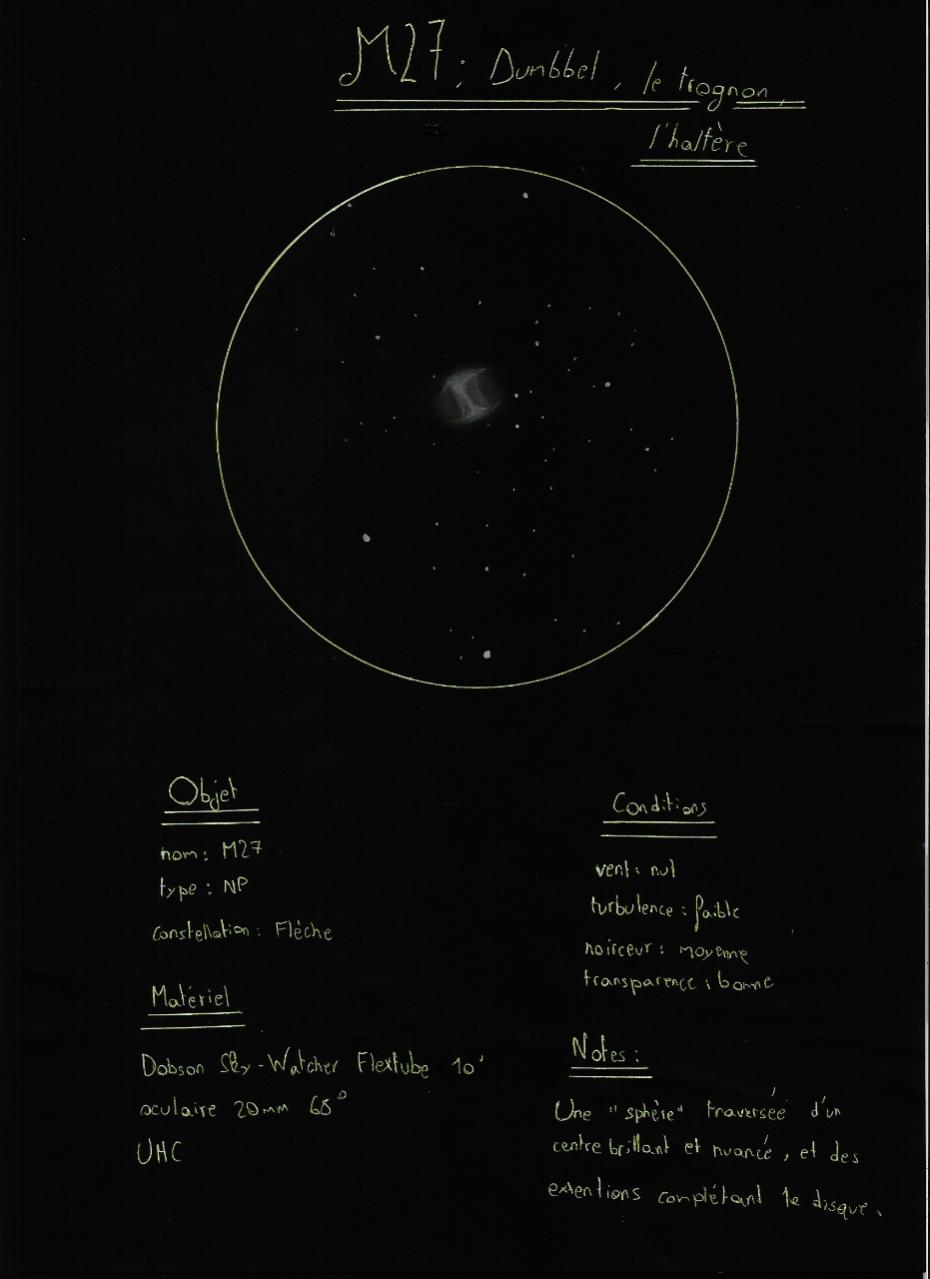 M27 : Dumbbel, le trognon,
l'haltère
Objet
nom : M27
type : NP
constellation : Flèche
Matériel
Dobson Sky-Watcher Flextube 10'
oculaire 20mm 68°
UHC
Conditions
vent : nul
turbulence : faible
noirceur : moyenne
transparence : bonne
Notes :
Une "sphère" traversée d'un
centre brillant et nuancé, et des
extentions complétant le disque.